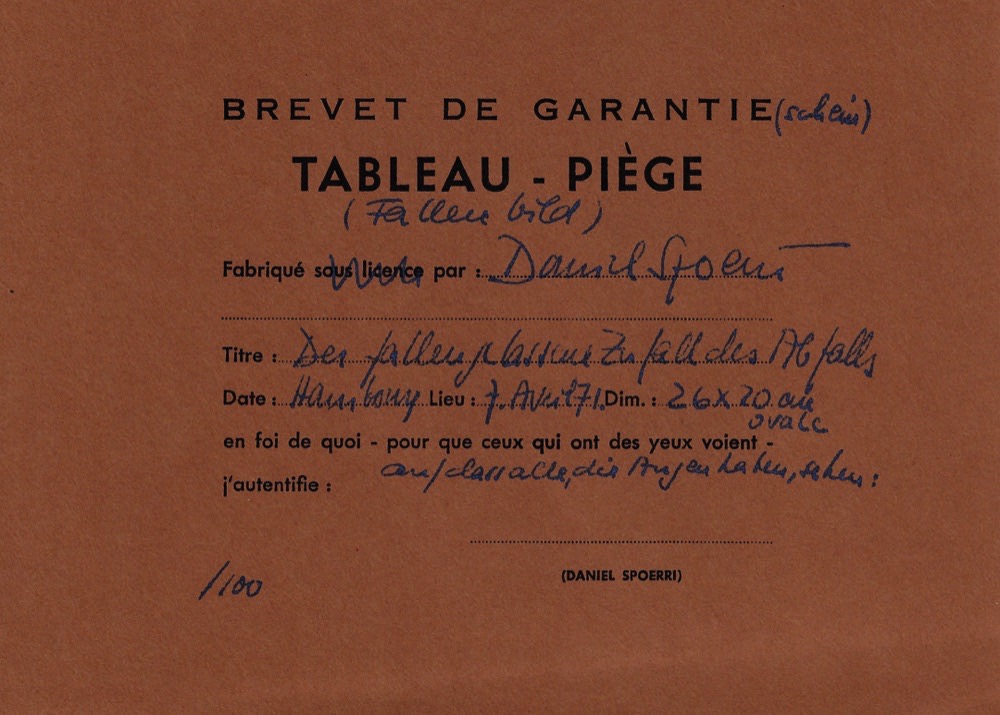 BREVET DE GARANTIE (schein)
TABLEAU - PIÈGE
(Fallenbild)
Fabriqué sous licence par : Daniel Spoerri
Titre : Der fallengelassene Zufall des Abfalls
Date : Hamburg Lieu : 7. Avril 71. Dim. : 26 x 20 cm
ovale
en foi de quoi - pour que ceux qui ont des yeux voient -
auf dass alle, die Augen haben, sehen :
j'autentifie :
(DANIEL SPOERRI)
/100